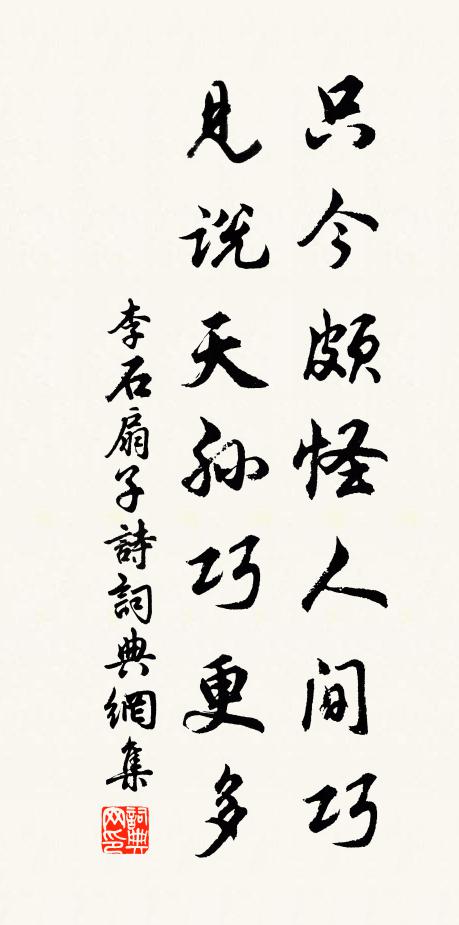 只今頗怪人间巧
見説天孫巧更多
李石扇子詩詞典網集
詞典网印